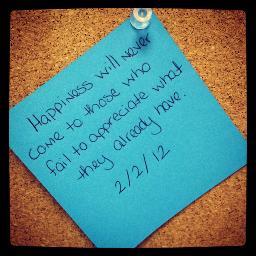 Happiness will never
come to those who
fail to appreciate what
they already have.
2/2/12